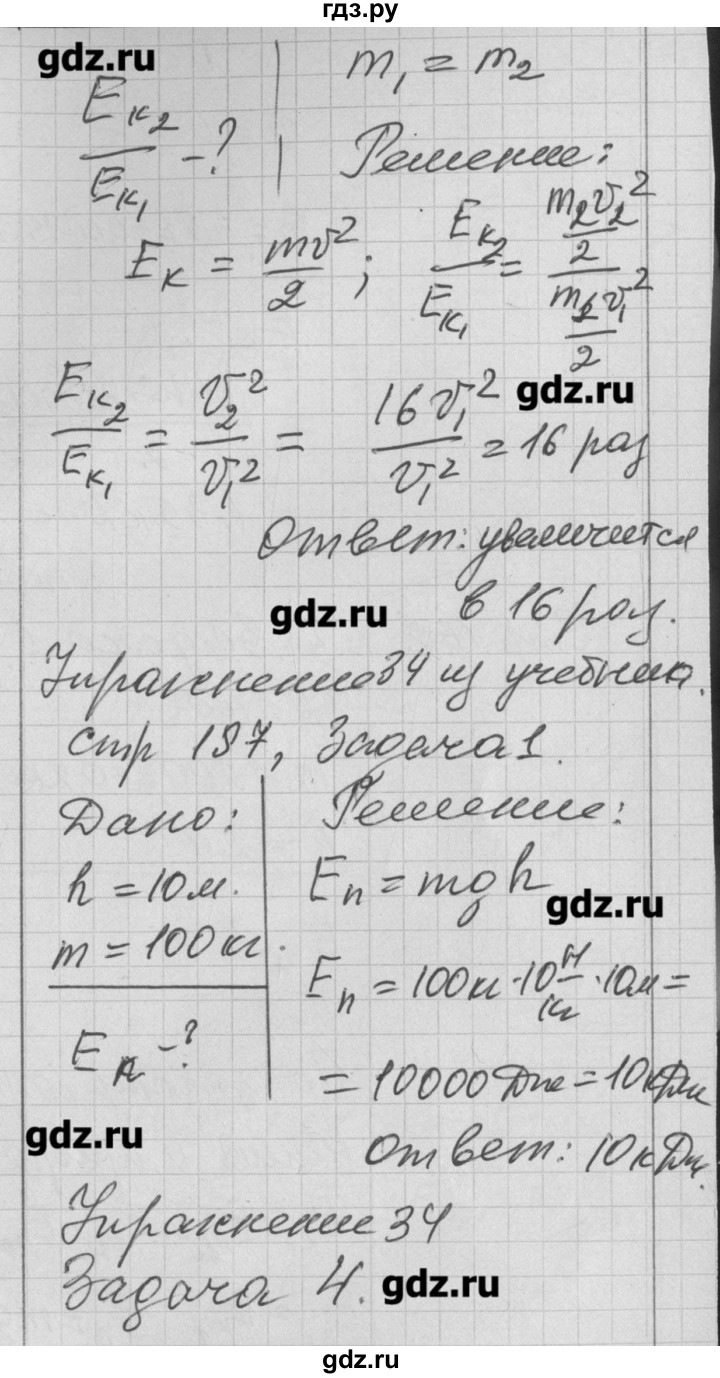 гдз.ру
gdz.ru
m₁ = m₂
Eк₂/Eк₁ - ?
Решение:
Eк = mv²/2; Eк₂/Eк₁ = (m₂v₂²/2)/(m₂v₁²/2)
Eк₂/Eк₁ = v₂²/v₁² = 16v₁²/v₁² = 16 раз
gdz.ru
Ответ: увеличится
в 16 раз.
gdz.ru
Упражнение 34 из учебника.
стр 187, Задача 1.
Дано:
h = 10 м.
m = 100 кг.
Eп - ?
Решение:
Eп = mgh
gdz.ru
Eп = 100 кг · 10 Н/кг · 10 м =
= 10000 Дж = 10 кДж
gdz.ru
Ответ: 10 кДж.
Упражнение 34
Задача 4.
gdz.ru
gdz.ru